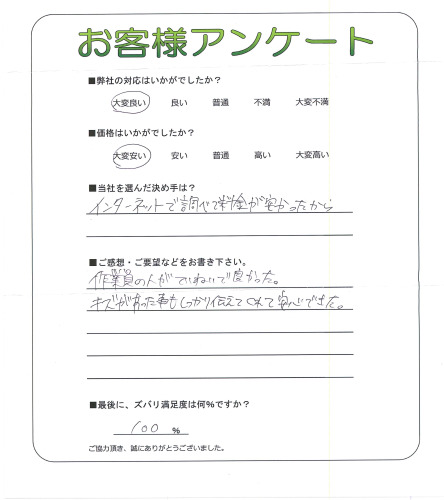 お客様アンケート
■弊社の対応はいかがでしたか？
大変良い 良い 普通 不満 大変不満
■価格はいかがでしたか？
大変安い 安い 普通 高い 大変高い
■当社を選んだ決め手は？
インターネットで調べて料金が安かったから
■ご感想・ご要望などをお書き下さい。
作業員の人がていねいで良かった。
キズがあった事もしっかり伝えてくれて安心できた。
■最後に、ズバリ満足度は何%ですか？
100 %
ご協力頂き、誠にありがとうございました。